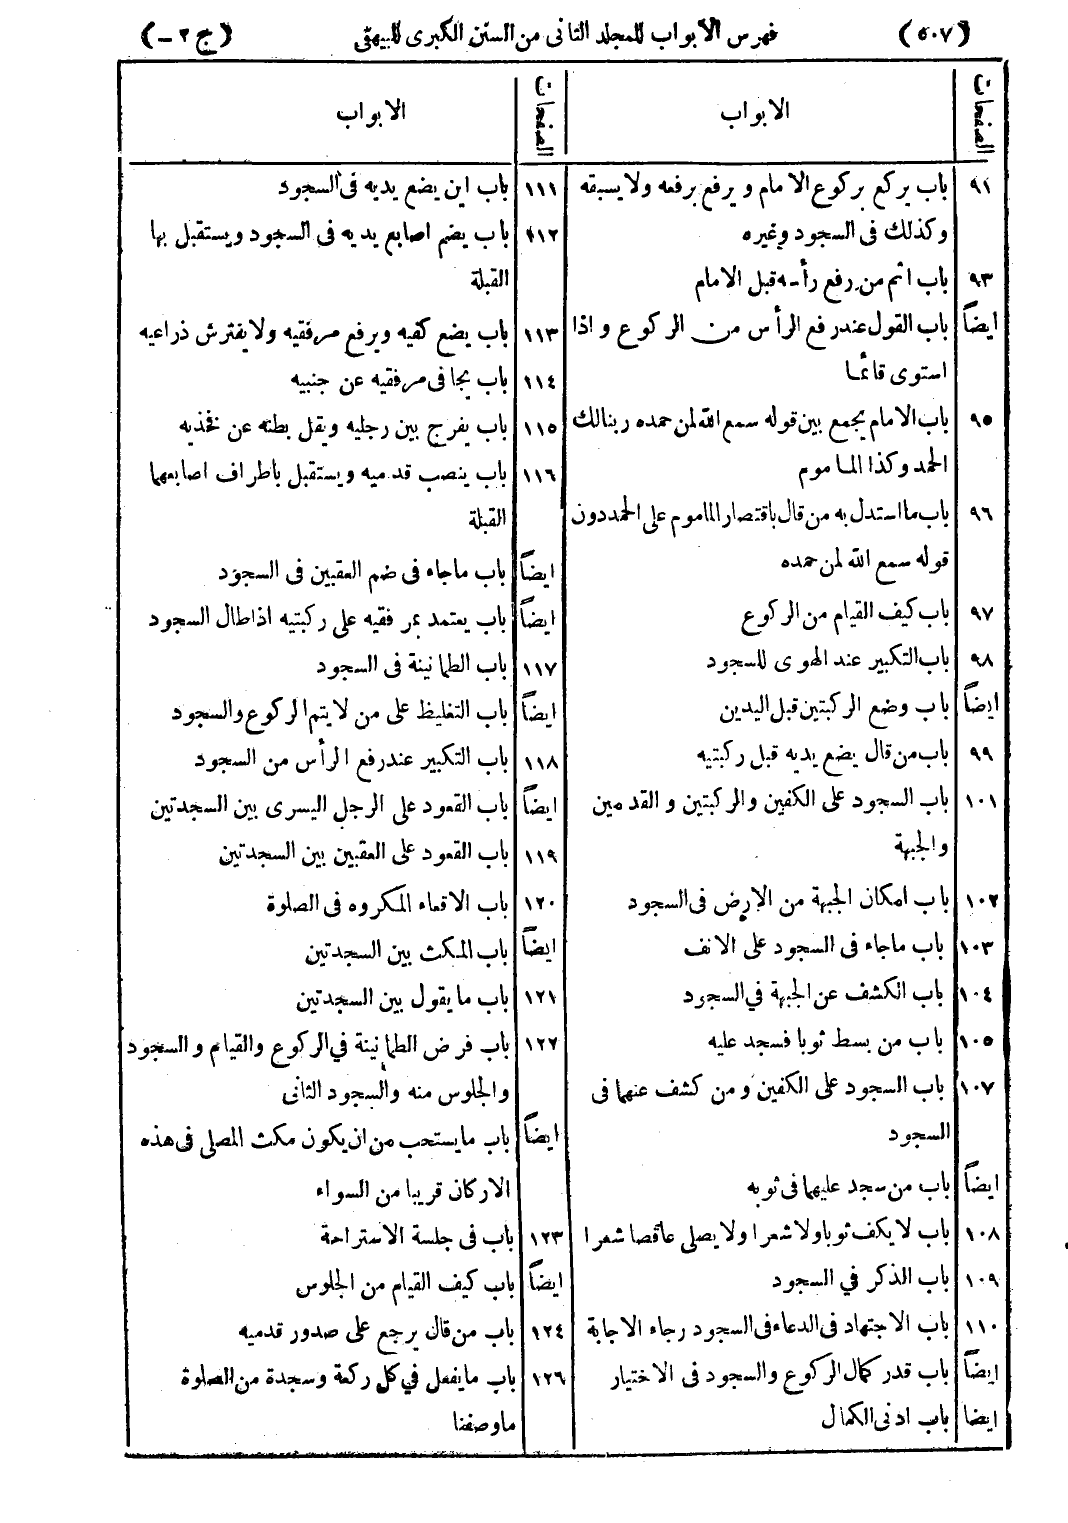 (٥٠٧) فهرس الابواب للمجلد الثانى من السنن الكبرى للبيهقى (ج ٢ـ)
الصفحات الابواب
٩١ باب يركع بركوع الامام و يرفع برفعه ولا يسبقه
وكذلك فى السجود وغيره
٩٣ باب اثم من رفع رأسه قبل الامام
ايضاً باب القول عند رفع الرأس من الركوع و اذا
استوى قائما
٩٥ باب الامام يجمع بين قوله سمع الله لمن حمده ربنا لك
الحمد وكذا الماموم
٩٦ باب ما استدل به من قال باقتصار الماموم على الحمد دون
قوله سمع الله لمن حمده
٩٧ باب كيف القيام من الركوع
٩٨ باب التكبير عند الهوى للسجود
ايضاً باب وضع الركبتين قبل اليدين
٩٩ باب من قال يضع يديه قبل ركبتيه
١٠١ باب السجود على الكفين والركبتين و القدمين
والجبهة
١٠٢ باب امكان الجبهة من الارض فى السجود
١٠٣ باب ماجاء فى السجود على الانف
١٠٤ باب الكشف عن الجبهة في السجود
١٠٥ باب من بسط ثوبا فسجد عليه
١٠٧ باب السجود على الكفين و من كشف عنهما فى
السجود
ايضاً باب من سجد عليهما فى ثوبه
١٠٨ باب لا يكف ثوبا ولا شعرا ولا يصلى عاقصا شعرا
١٠٩ باب الذكر في السجود
١١٠ باب الاجتهاد فى الدعاء فى السجود رجاء الاجابة
ايضاً باب قدر كمال الركوع والسجود فى الاختيار
ايضا باب ادنى الكمال
الصفحات الابواب
١١١ باب اين يضع يديه فى السجود
١١٢ باب يضم اصابع يديه فى السجود ويستقبل بها
القبلة
١١٣ باب يضع كفيه ويرفع مرفقيه ولا يفترش ذراعيه
١١٤ باب يجافى مرفقيه عن جنبيه
١١٥ باب يفرج بين رجليه ويقل بطنه عن فخذيه
١١٦ باب ينصب قدميه ويستقبل باطراف اصابعهما
القبلة
ايضاً باب ماجاء فى ضم العقبين فى السجود
ايضاً باب يعتمد بمرفقيه على ركبتيه اذا طال السجود
١١٧ باب الطمانينة فى السجود
ايضاً باب التغليظ على من لا يتم الركوع والسجود
١١٨ باب التكبير عند رفع الرأس من السجود
ايضاً باب القعود على الرجل اليسرى بين السجدتين
١١٩ باب القعود على العقبين بين السجدتين
١٢٠ باب الاقعاء المكروه فى الصلوة
ايضاً باب المكث بين السجدتين
١٢١ باب ما يقول بين السجدتين
١٢٢ باب فرض الطمانينة في الركوع والقيام و السجود
والجلوس منه والسجود الثانى
ايضاً باب ما يستحب من ان يكون مكث المصلى فى هذه
الاركان قريبا من السواء
١٢٣ باب فى جلسة الاستراحة
ايضاً باب كيف القيام من الجلوس
١٢٤ باب من قال يرجع على صدور قدميه
١٢٦ باب ما يفعل في كل ركعة وسجدة من الصلوة
ما وصفنا